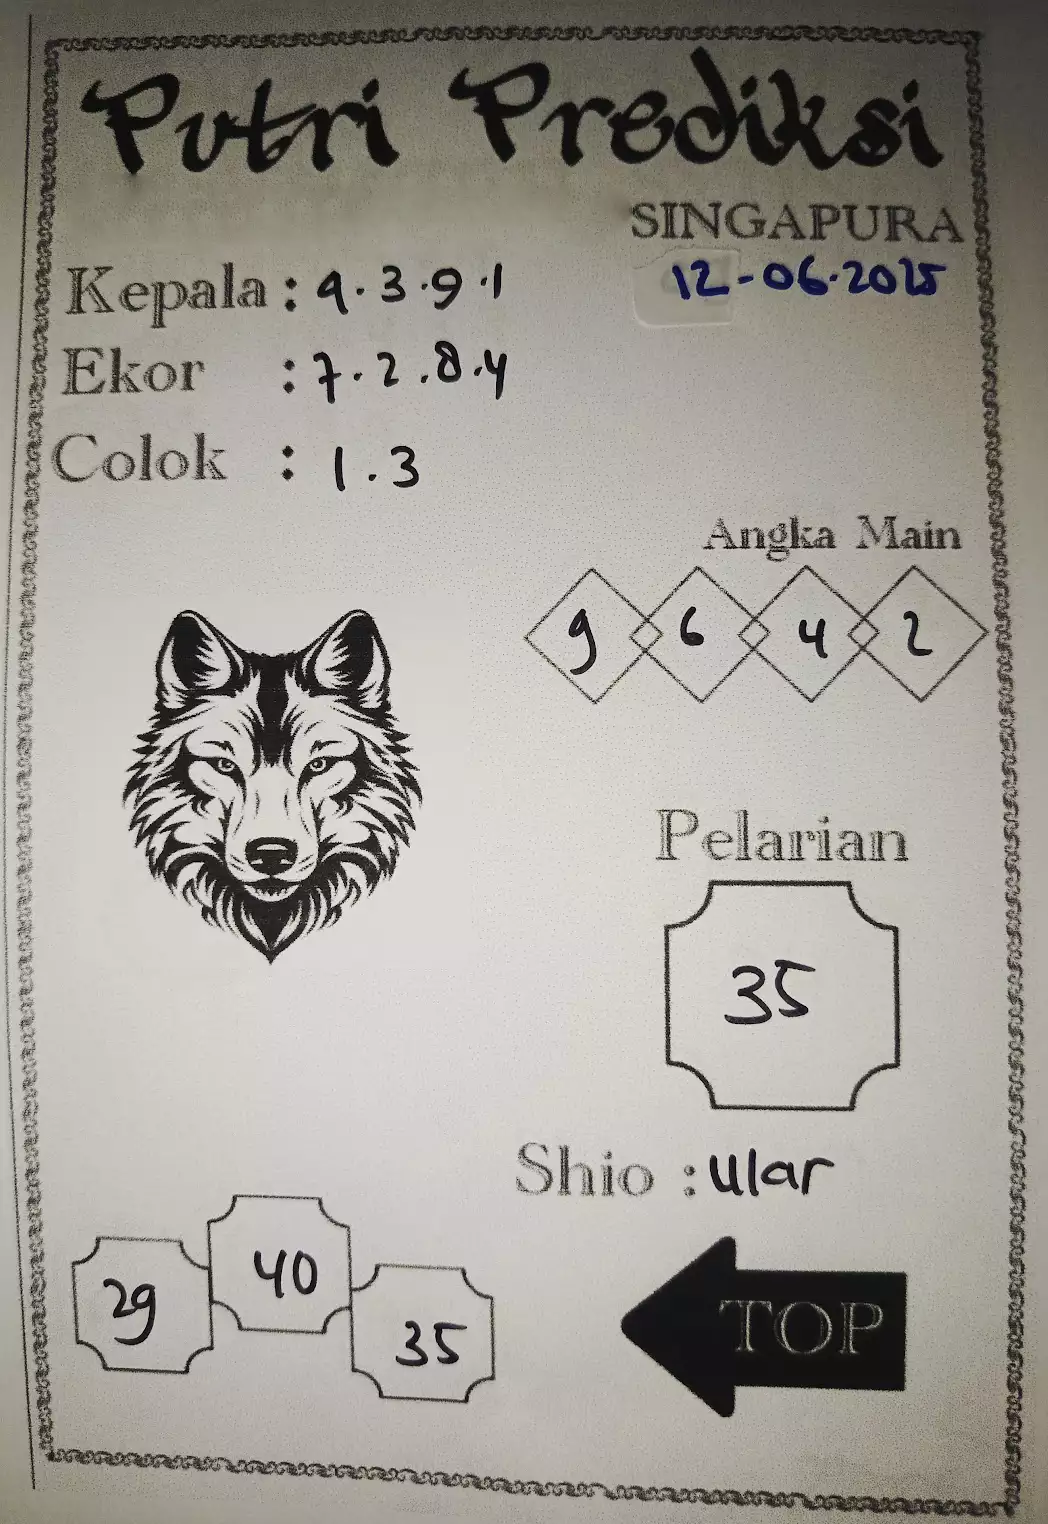 Putri Prediksi
SINGAPURA
12-06-2025
Kepala : 9.3.9.1
Ekor : 7.2.8.4
Colok : 1.3
Angka Main
9 6 4 2
Pelarian
35
Shio : ular
29 40 35
TOP